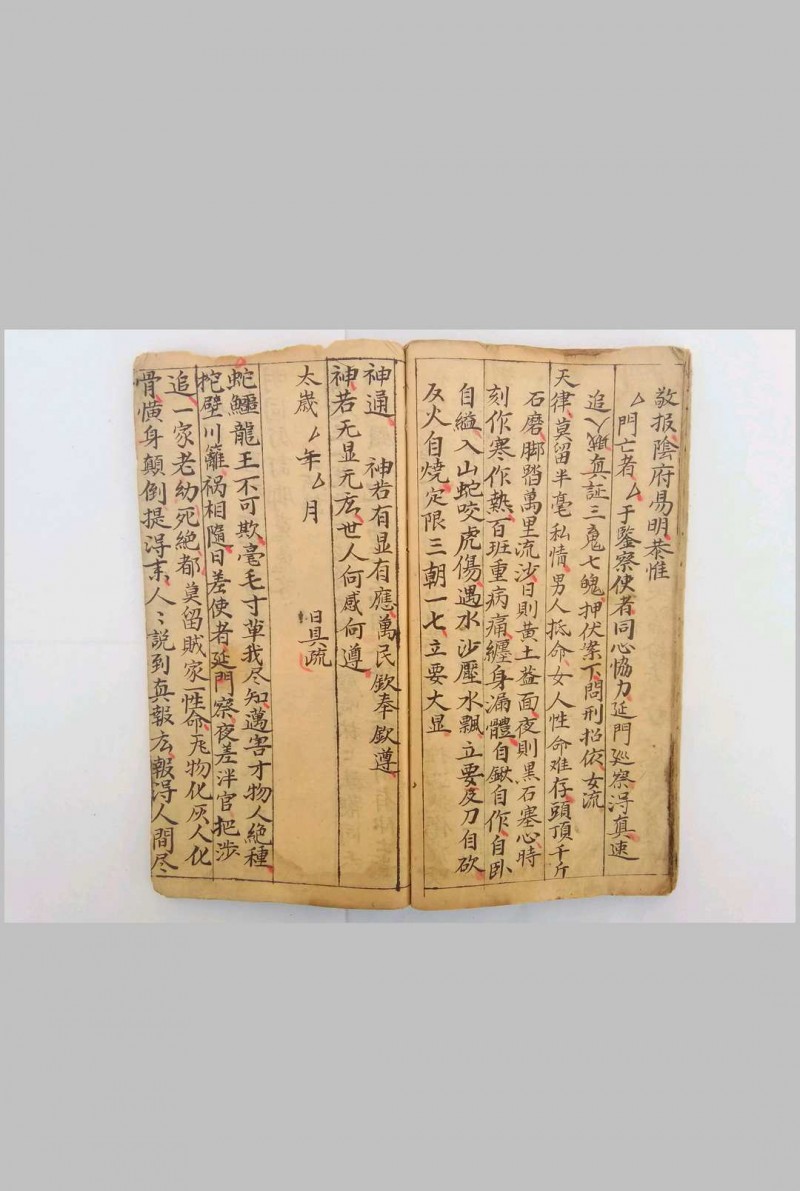 敬报陰府易明恭惟
厶門亡者厶于鑒察使者同心協力延門巡察浔真速
追入賊真証三鬼七魄押伏案下問刑招依女流
天律莫留半毫私情男人抵命女人性命难存頭頂千斤
石磨脚踏萬里流沙日則黄土盖面夜則黑石塞心時
刻作寒作熱百班重病痛纏身漏體自鍬自作自卧
自縊入山蛇咬虎傷遇水沙壓水飄立要反刀自砍
反火自燒定限三朝一七立要大显
神通 神若有显有應萬民欽奉欽遵
神若无显无灵世人何感何遵
太歲厶年厶月 日具疏
蛇鱷龍王不可欺毫毛寸草我尽知萬害才物人絕種
挖壁川籬祸相隨日差使者延門察夜差泮官把步
追一家老幼死絕都莫留賊家一性命无物化灰人化
骨懶身顛倒提浔来人〻説到真報灵報浔人間尽